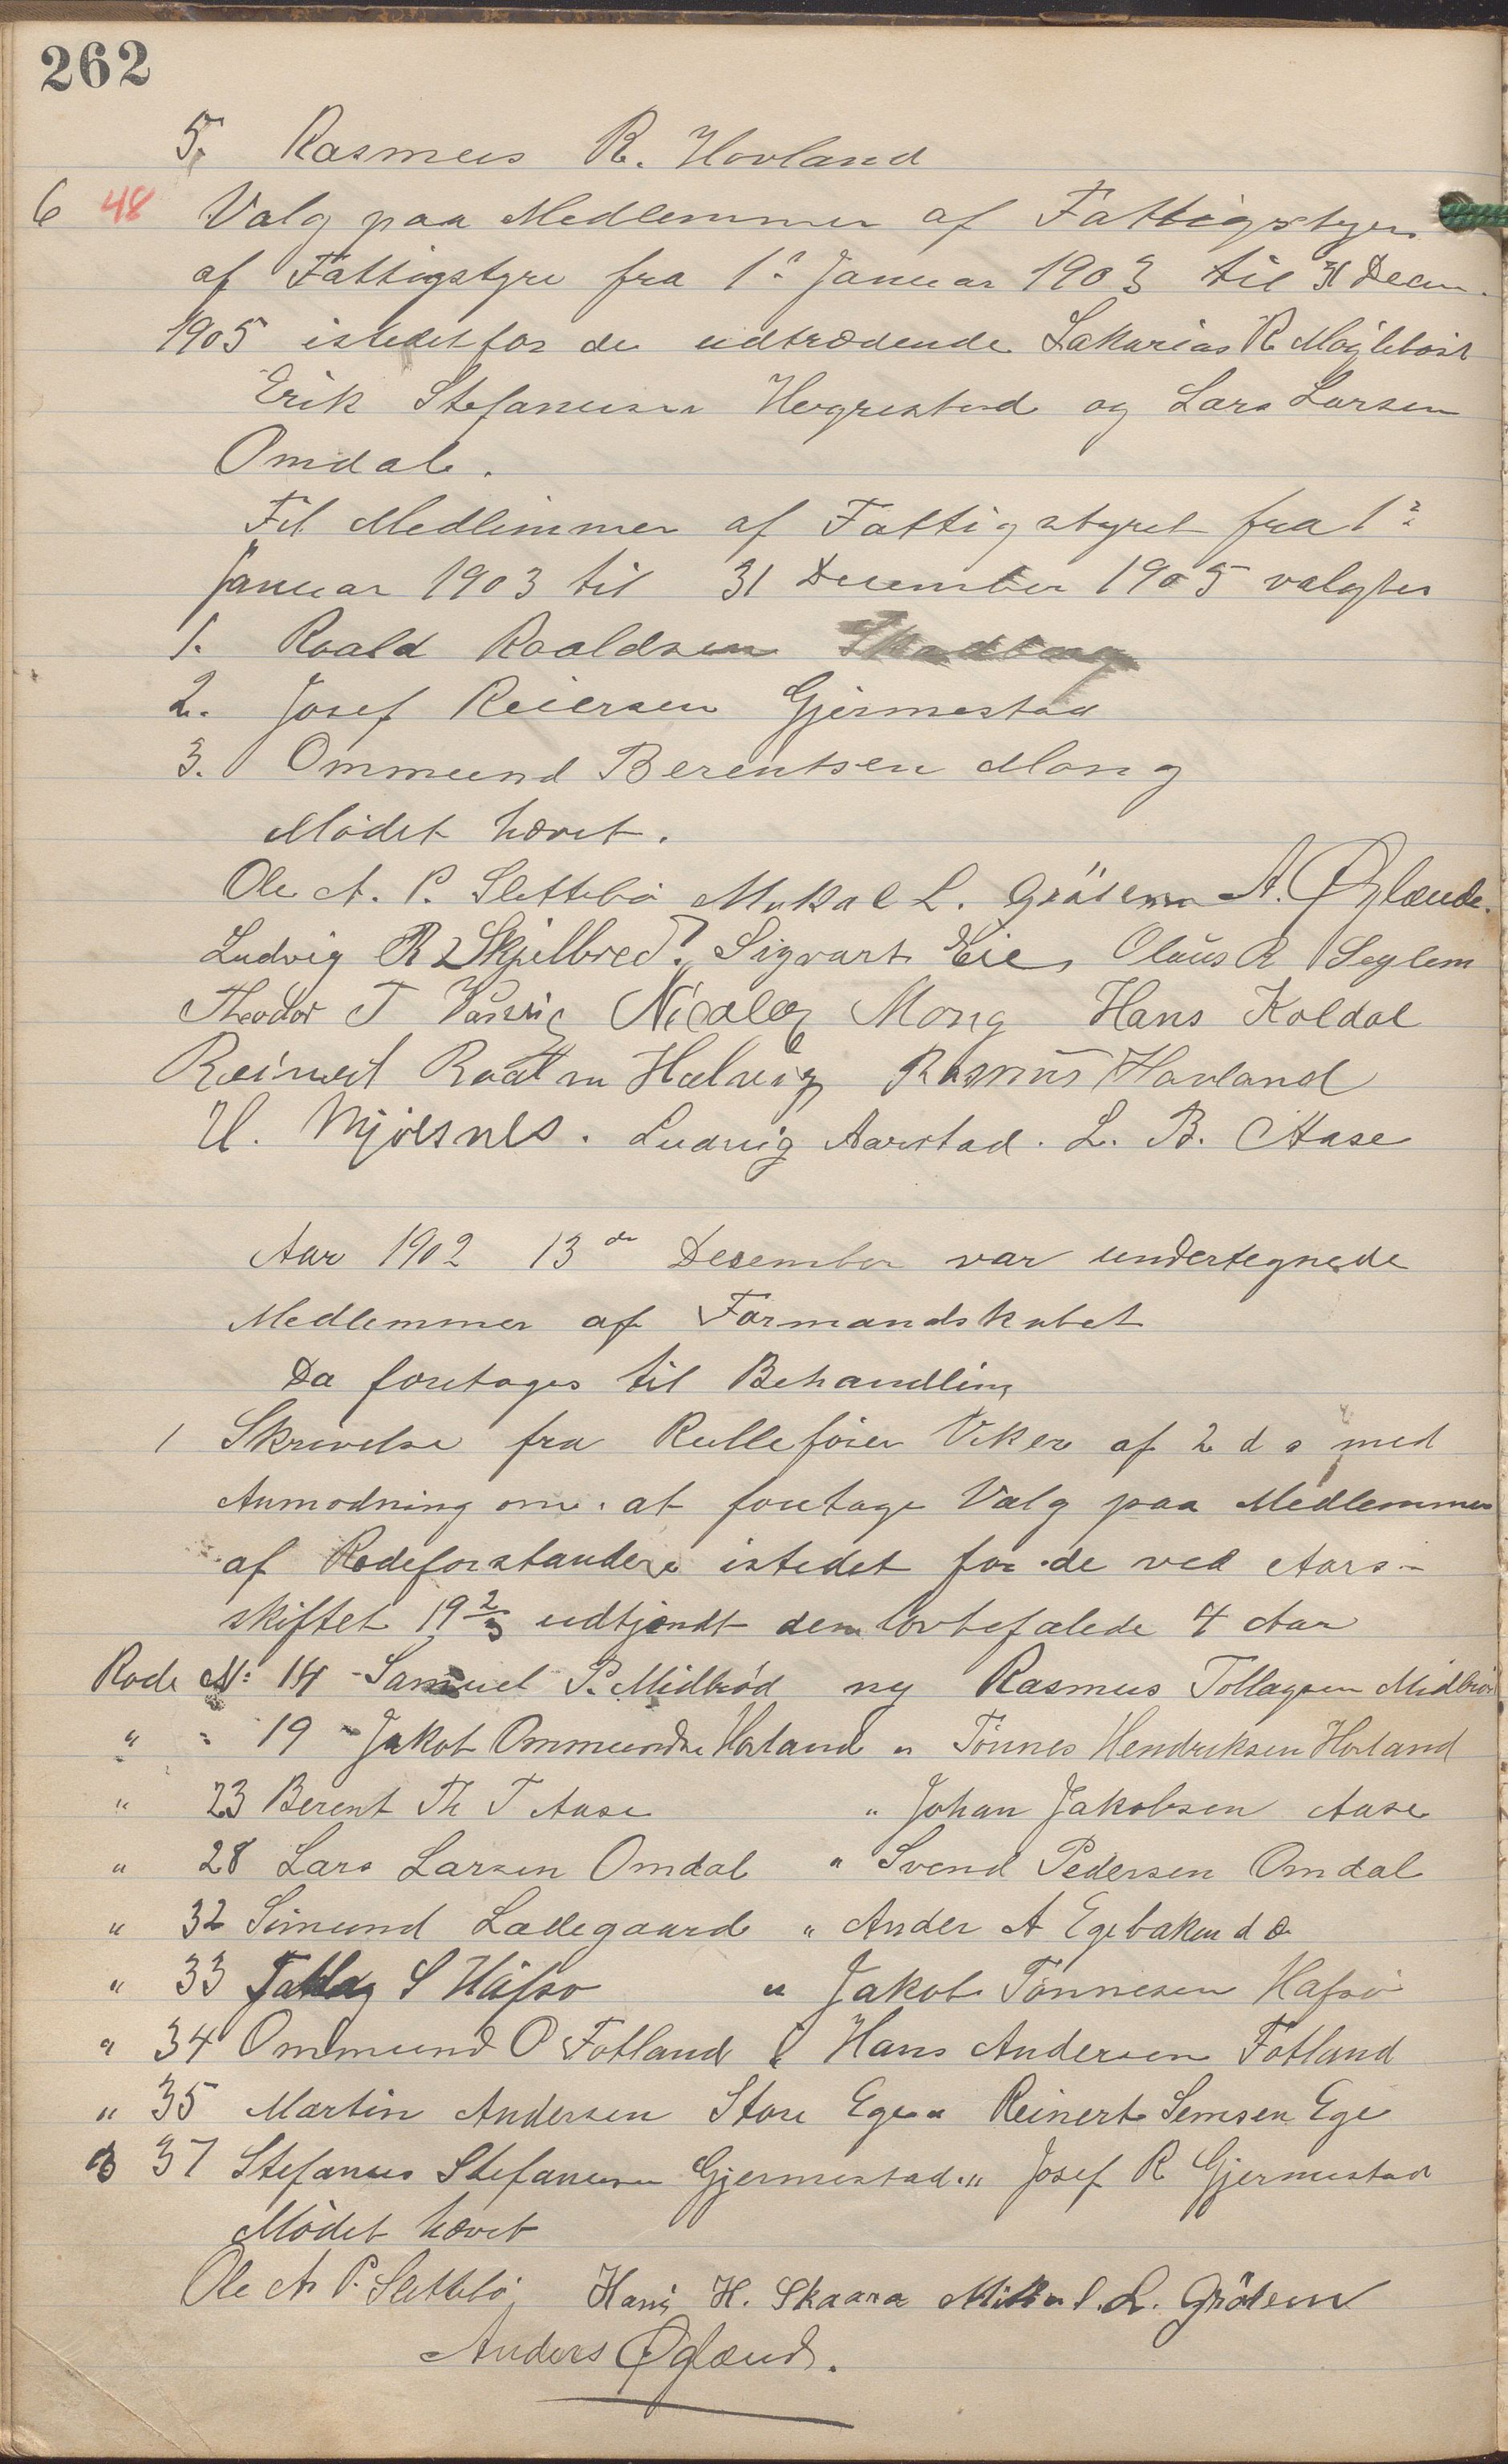 262
5. Rasmus R. Hovland
6 48 Valg paa Medlemmer af Fattigstyre
af Fattigstyre fra 1ʳ Januar 1903 til 31 Decm.
1905 istedetfor de udtrædende Sakarias R Møglebost
Erik Stefanusen Hegrestad og Lars Larsen
Omdal.
Til Medlemmer af Fattigstyret fra 1ʳ
Januar 1903 til 31 December 1905 valgtes
1. Roald Roaldsen
2. Josef Reiersen Gjermestad
3. Ommund Berentsen Mong
Mödet hævet.
Ole A. P. Slettebö Mikal L. Grøsem A. Øglænde.
Ludvig R Skjelbred. Sigvart Eie, Olaus R Seglem
Theodor T Nicolay Mong Hans Koldal
Reinert Roaldsen Helvig Rasmus Hovland
U. Mjölsnes. Ludvig Aarstad. L. B. Aase
Aar 1902 13de Desember var undertegnede
Medlemmer af Formandskabet
Da foretoges til Behandling
1 Skrivelse fra Rulleförer Viker af 2 d s med
Anmodning om at foretage Valg paa Medlemmer
af Rodeforstandere istedet for de ved Aars-
skiftet 19 2/3 udtjændt den lovbefalede 4 Aar
Rode No 14 - Samuel P. Midbröd ny Rasmus Tollagsen Midbröd
" " 19 - Jakob Ommundsen Hovland " Tönnes Hendriksen Hovland
" 23 Berent Th T Aase " Johan Jakobsen Aase
" 28 Lars Larsen Omdal " Svend Pedersen Omdal
" 32 Simund Ladegaard " Ander A Egebaken d o
" 33 Tollag S Hafsö " Jakob Tönnesen Hafsö
" 34 Ommund O Fotland " Hans Andersen Fotland
" 35 Martin Andersen Store Ege " Reinert Semsen Ege
" 37 Stefanus Stefanusen Gjermestad " Josef R Gjermestad
Mödet hævet
Ole A P. Slettebö, Hans H. Skaara Mikal L. Grösem
Anders Øglænd.